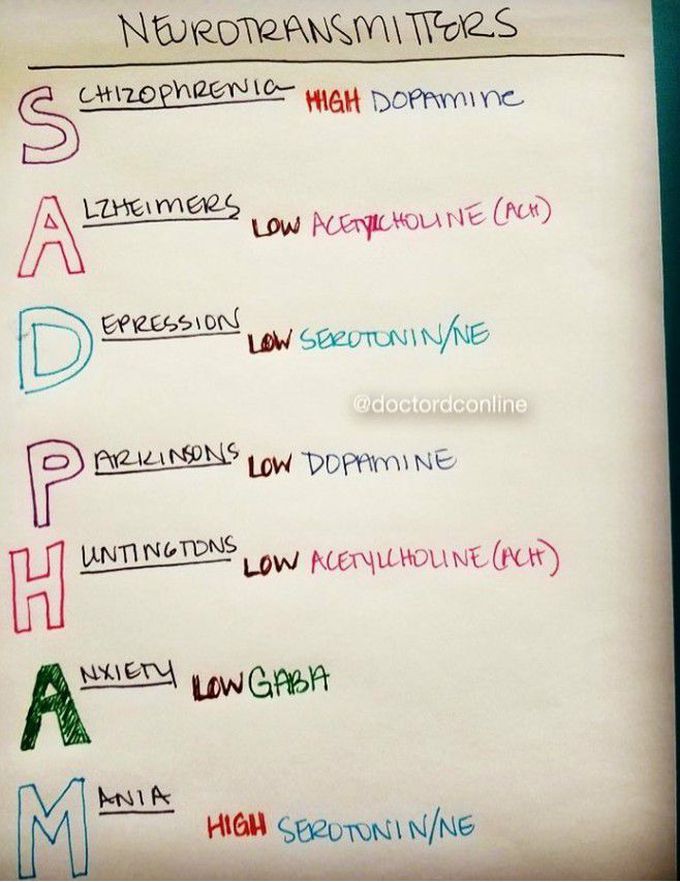 NEUROTRANSMITTERS
SCHIZOPHRENIA HIGH DOPAMINE
ALZHEIMERS LOW ACETYLCHOLINE (ACH)
DEPRESSION LOW SEROTONIN/NE
@doctordconline
PARKINSONS LOW DOPAMINE
HUNTINGTONS LOW ACETYLCHOLINE (ACH)
ANXIETY LOW GABA
MANIA HIGH SEROTONIN/NE